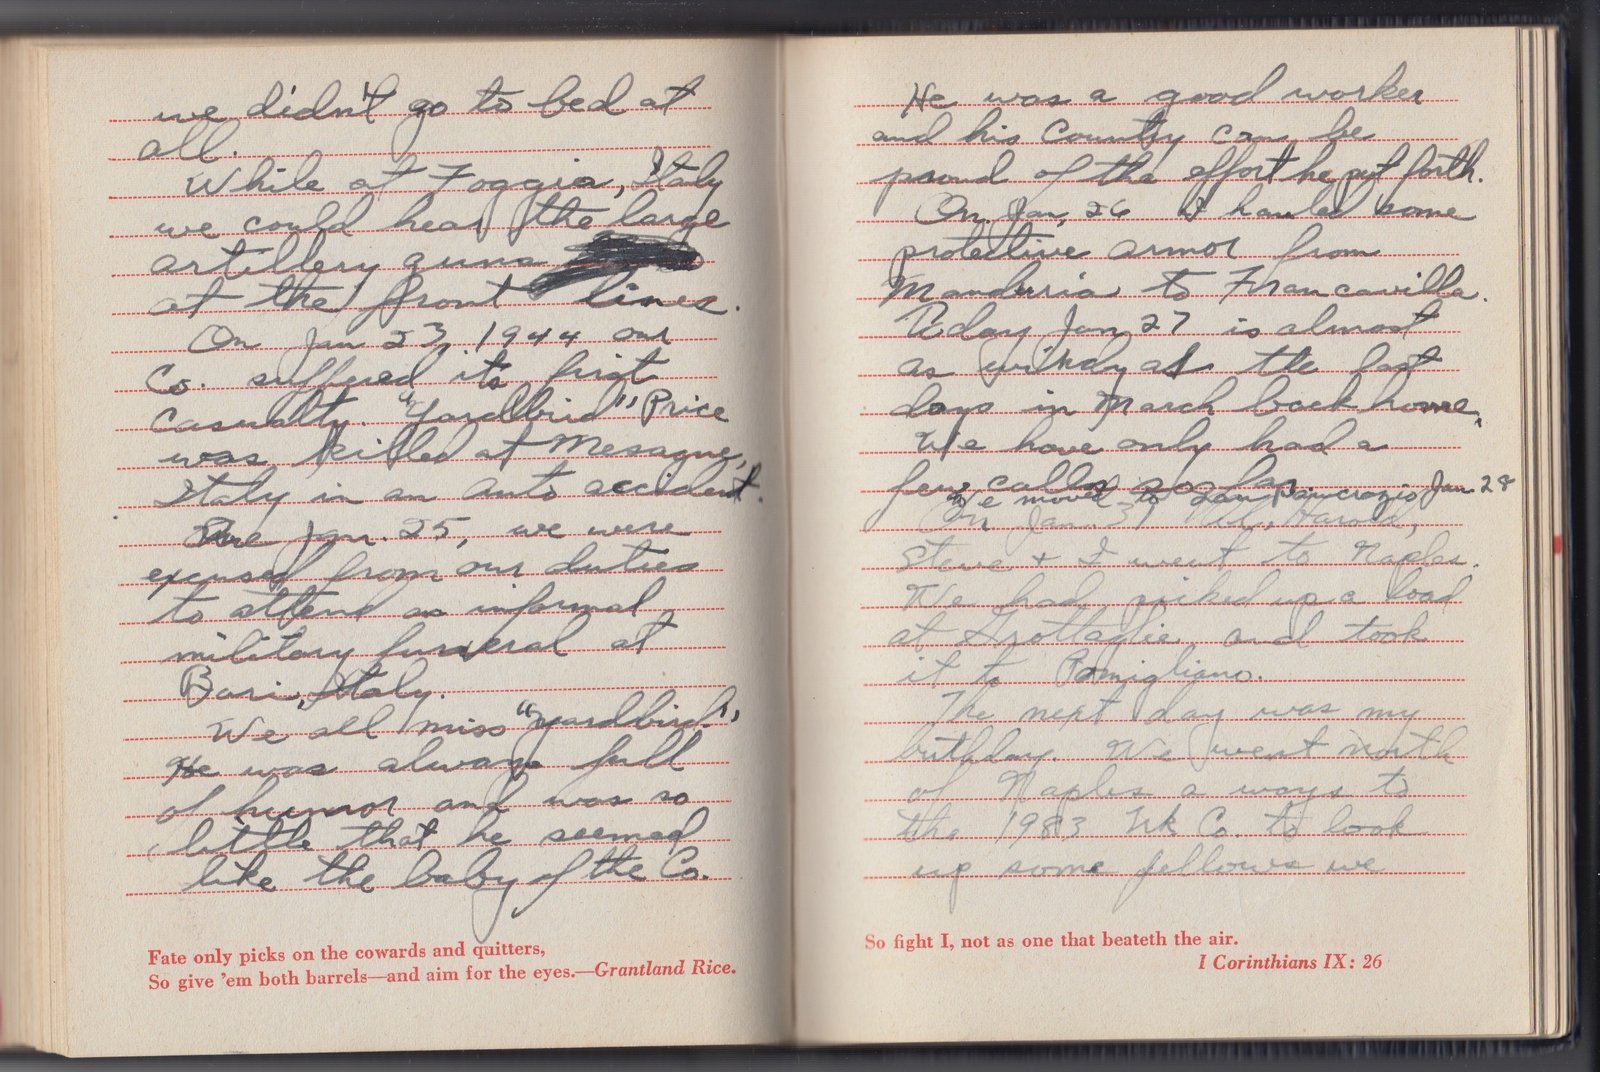 we didn't go to bed at
all.
While at Foggia, Italy
we could hear the large
artillery guns
at the front lines.
On Jan 23, 1944 our
Co. suffered it's first
casualty. "Yardbird" Price
was killed at Mesagne,
Italy in an auto accident.
Jan. 25, we were
excused from our duties
to attend an informal
military funeral at
Bari, Italy.
We all miss "Yardbird",
He was always full
of humor and was so
little that he seemed
like the baby of the Co.
Fate only picks on the cowards and quitters,
So give 'em both barrels—and aim for the eyes.—Grantland Rice.
He was a good worker
and his Country can be
proud of the effort he put forth.
On Jan, 26 I hauled some
protective armor from
Manduria to Francavilla.
Today Jan, 27 is almost
as windy as the last
days in March back home.
We have only had a
few calls so far.
We moved to San Pancrazio Jan 28
On Jan. 31 Harold,
Steve & I went to Naples.
We had picked up a load
at Grottaglie and took
it to Pomigliano.
The next day was my
birthday. We went north
of Naples a ways to
the 1983 Trk Co. to look
up some fellows we
So fight I, not as one that beateth the air.
I Corinthians IX: 26